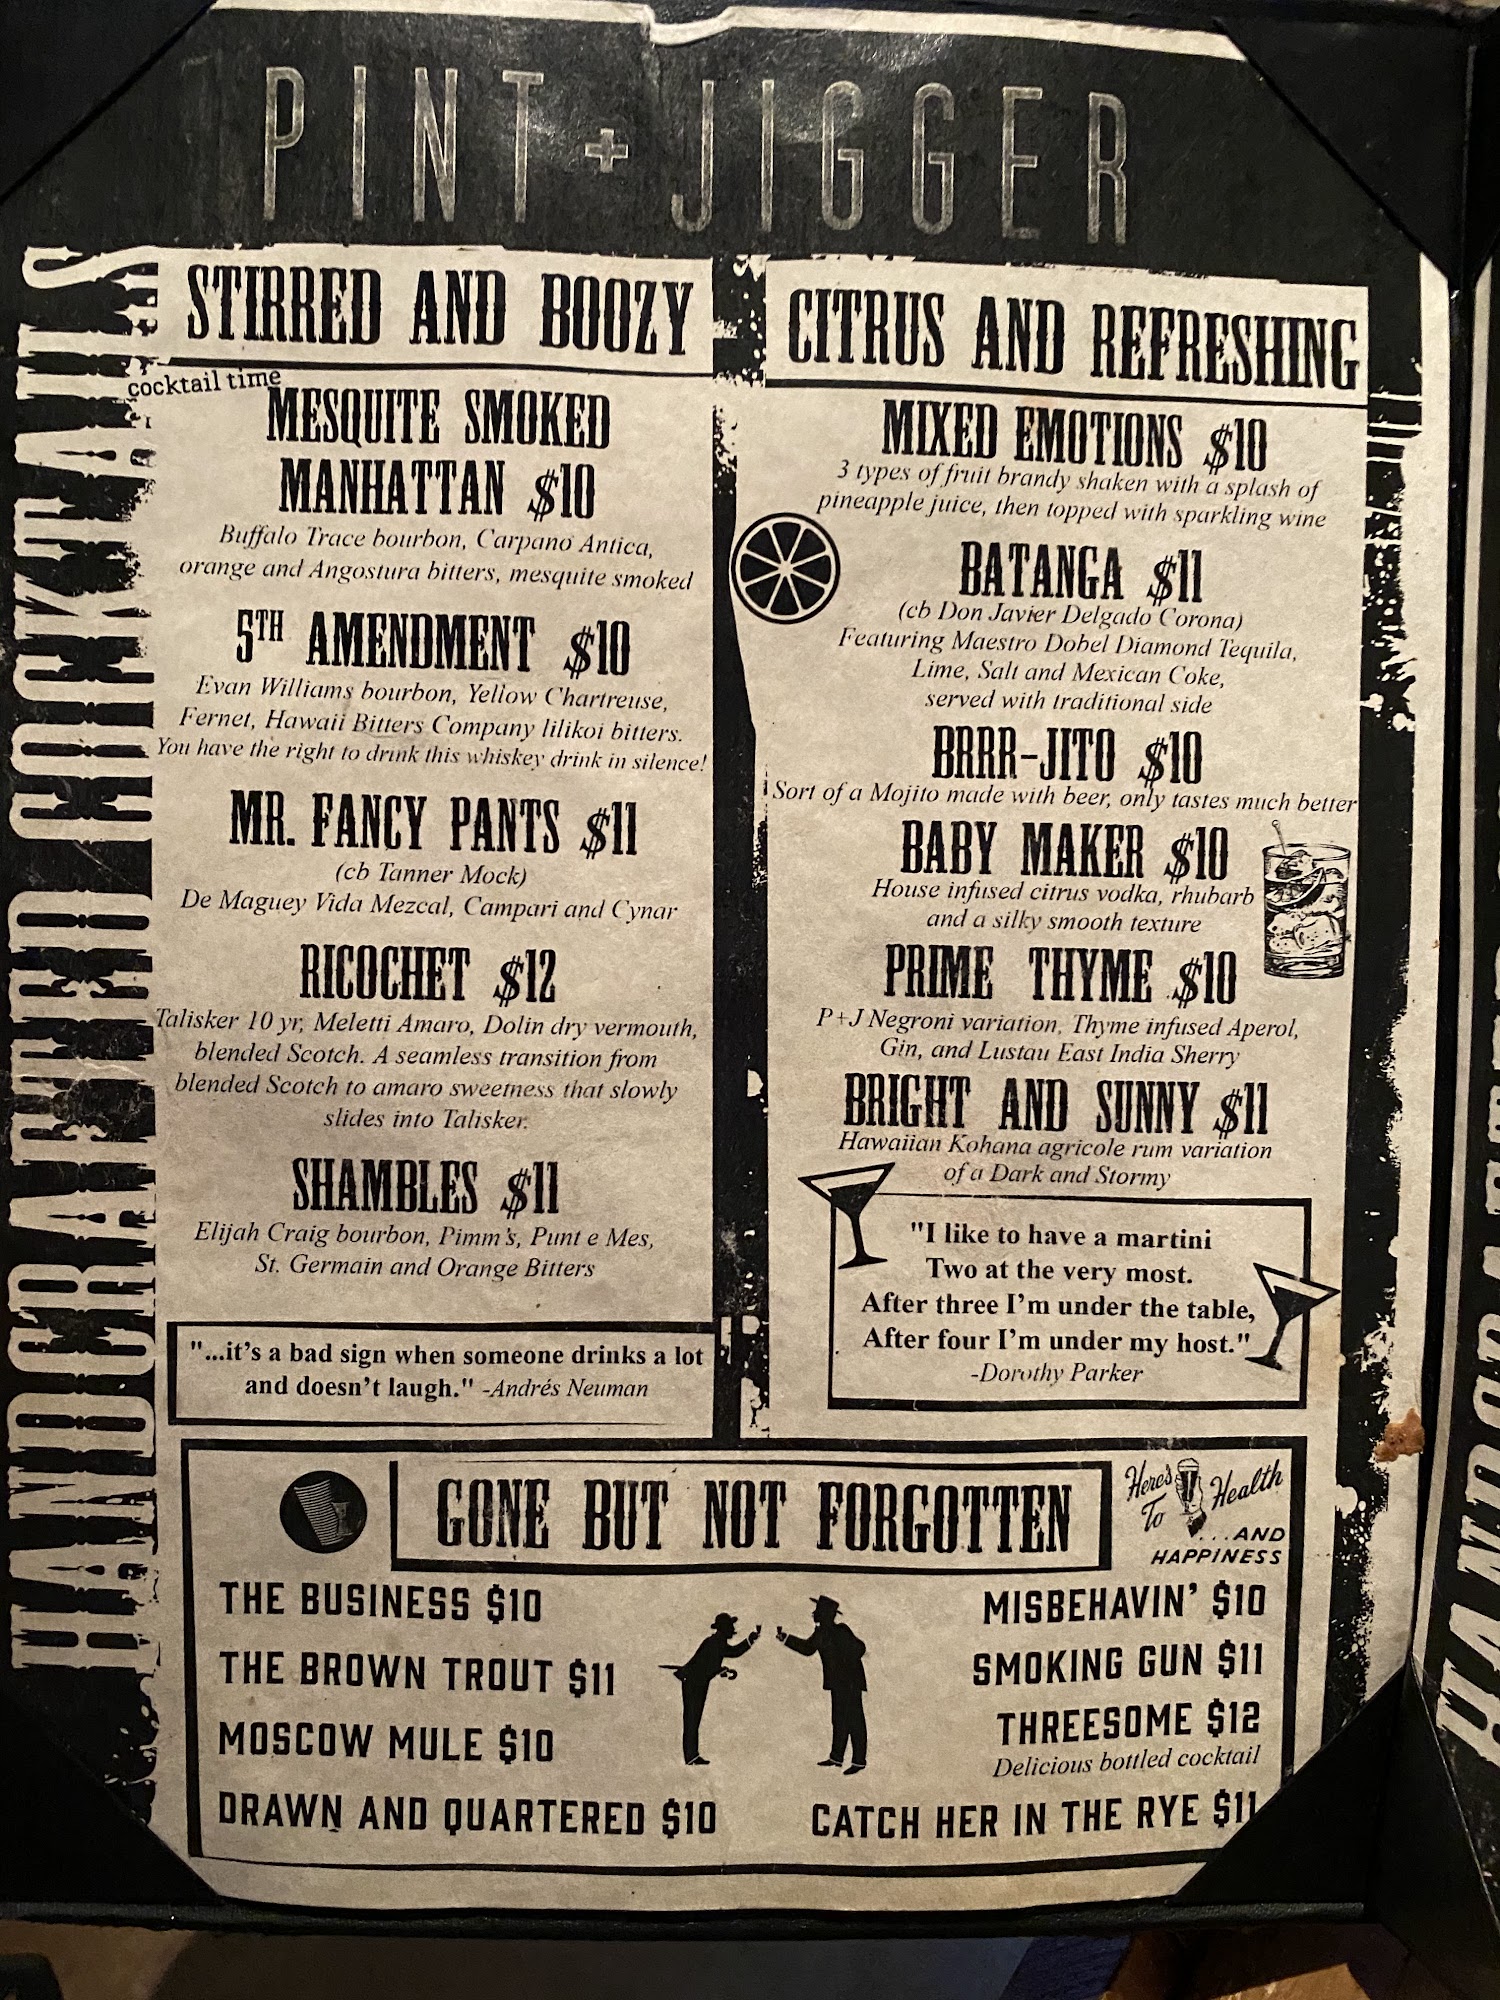 PINT + JIGGER
HANDCRAFTED COCKTAILS
cocktail time
STIRRED AND BOOZY
MESQUITE SMOKED
MANHATTAN $10
Buffalo Trace bourbon, Carpano Antica,
orange and Angostura bitters, mesquite smoked
5TH AMENDMENT $10
Evan Williams bourbon, Yellow Chartreuse,
Fernet, Hawaii Bitters Company lilikoi bitters.
You have the right to drink this whiskey drink in silence!
MR. FANCY PANTS $11
(cb Tanner Mock)
De Maguey Vida Mezcal, Campari and Cynar
RICOCHET $12
Talisker 10 yr, Meletti Amaro, Dolin dry vermouth,
blended Scotch. A seamless transition from
blended Scotch to amaro sweetness that slowly
slides into Talisker.
SHAMBLES $11
Elijah Craig bourbon, Pimm's, Punt e Mes,
St. Germain and Orange Bitters
"...it's a bad sign when someone drinks a lot
and doesn't laugh." -Andrés Neuman
CITRUS AND REFRESHING
MIXED EMOTIONS $10
3 types of fruit brandy shaken with a splash of
pineapple juice, then topped with sparkling wine
BATANGA $11
(cb Don Javier Delgado Corona)
Featuring Maestro Dobel Diamond Tequila,
Lime, Salt and Mexican Coke,
served with traditional side
BRRR-JITO $10
Sort of a Mojito made with beer, only tastes much better
BABY MAKER $10
House infused citrus vodka, rhubarb
and a silky smooth texture
PRIME THYME $10
P+J Negroni variation, Thyme infused Aperol,
Gin, and Lustau East India Sherry
BRIGHT AND SUNNY $11
Hawaiian Kohana agricole rum variation
of a Dark and Stormy
"I like to have a martini
Two at the very most.
After three I'm under the table,
After four I'm under my host."
-Dorothy Parker
GONE BUT NOT FORGOTTEN
Here's To Health
...AND
HAPPINESS
THE BUSINESS $10
THE BROWN TROUT $11
MOSCOW MULE $10
DRAWN AND QUARTERED $10
MISBEHAVIN' $10
SMOKING GUN $11
THREESOME $12
Delicious bottled cocktail
CATCH HER IN THE RYE $11